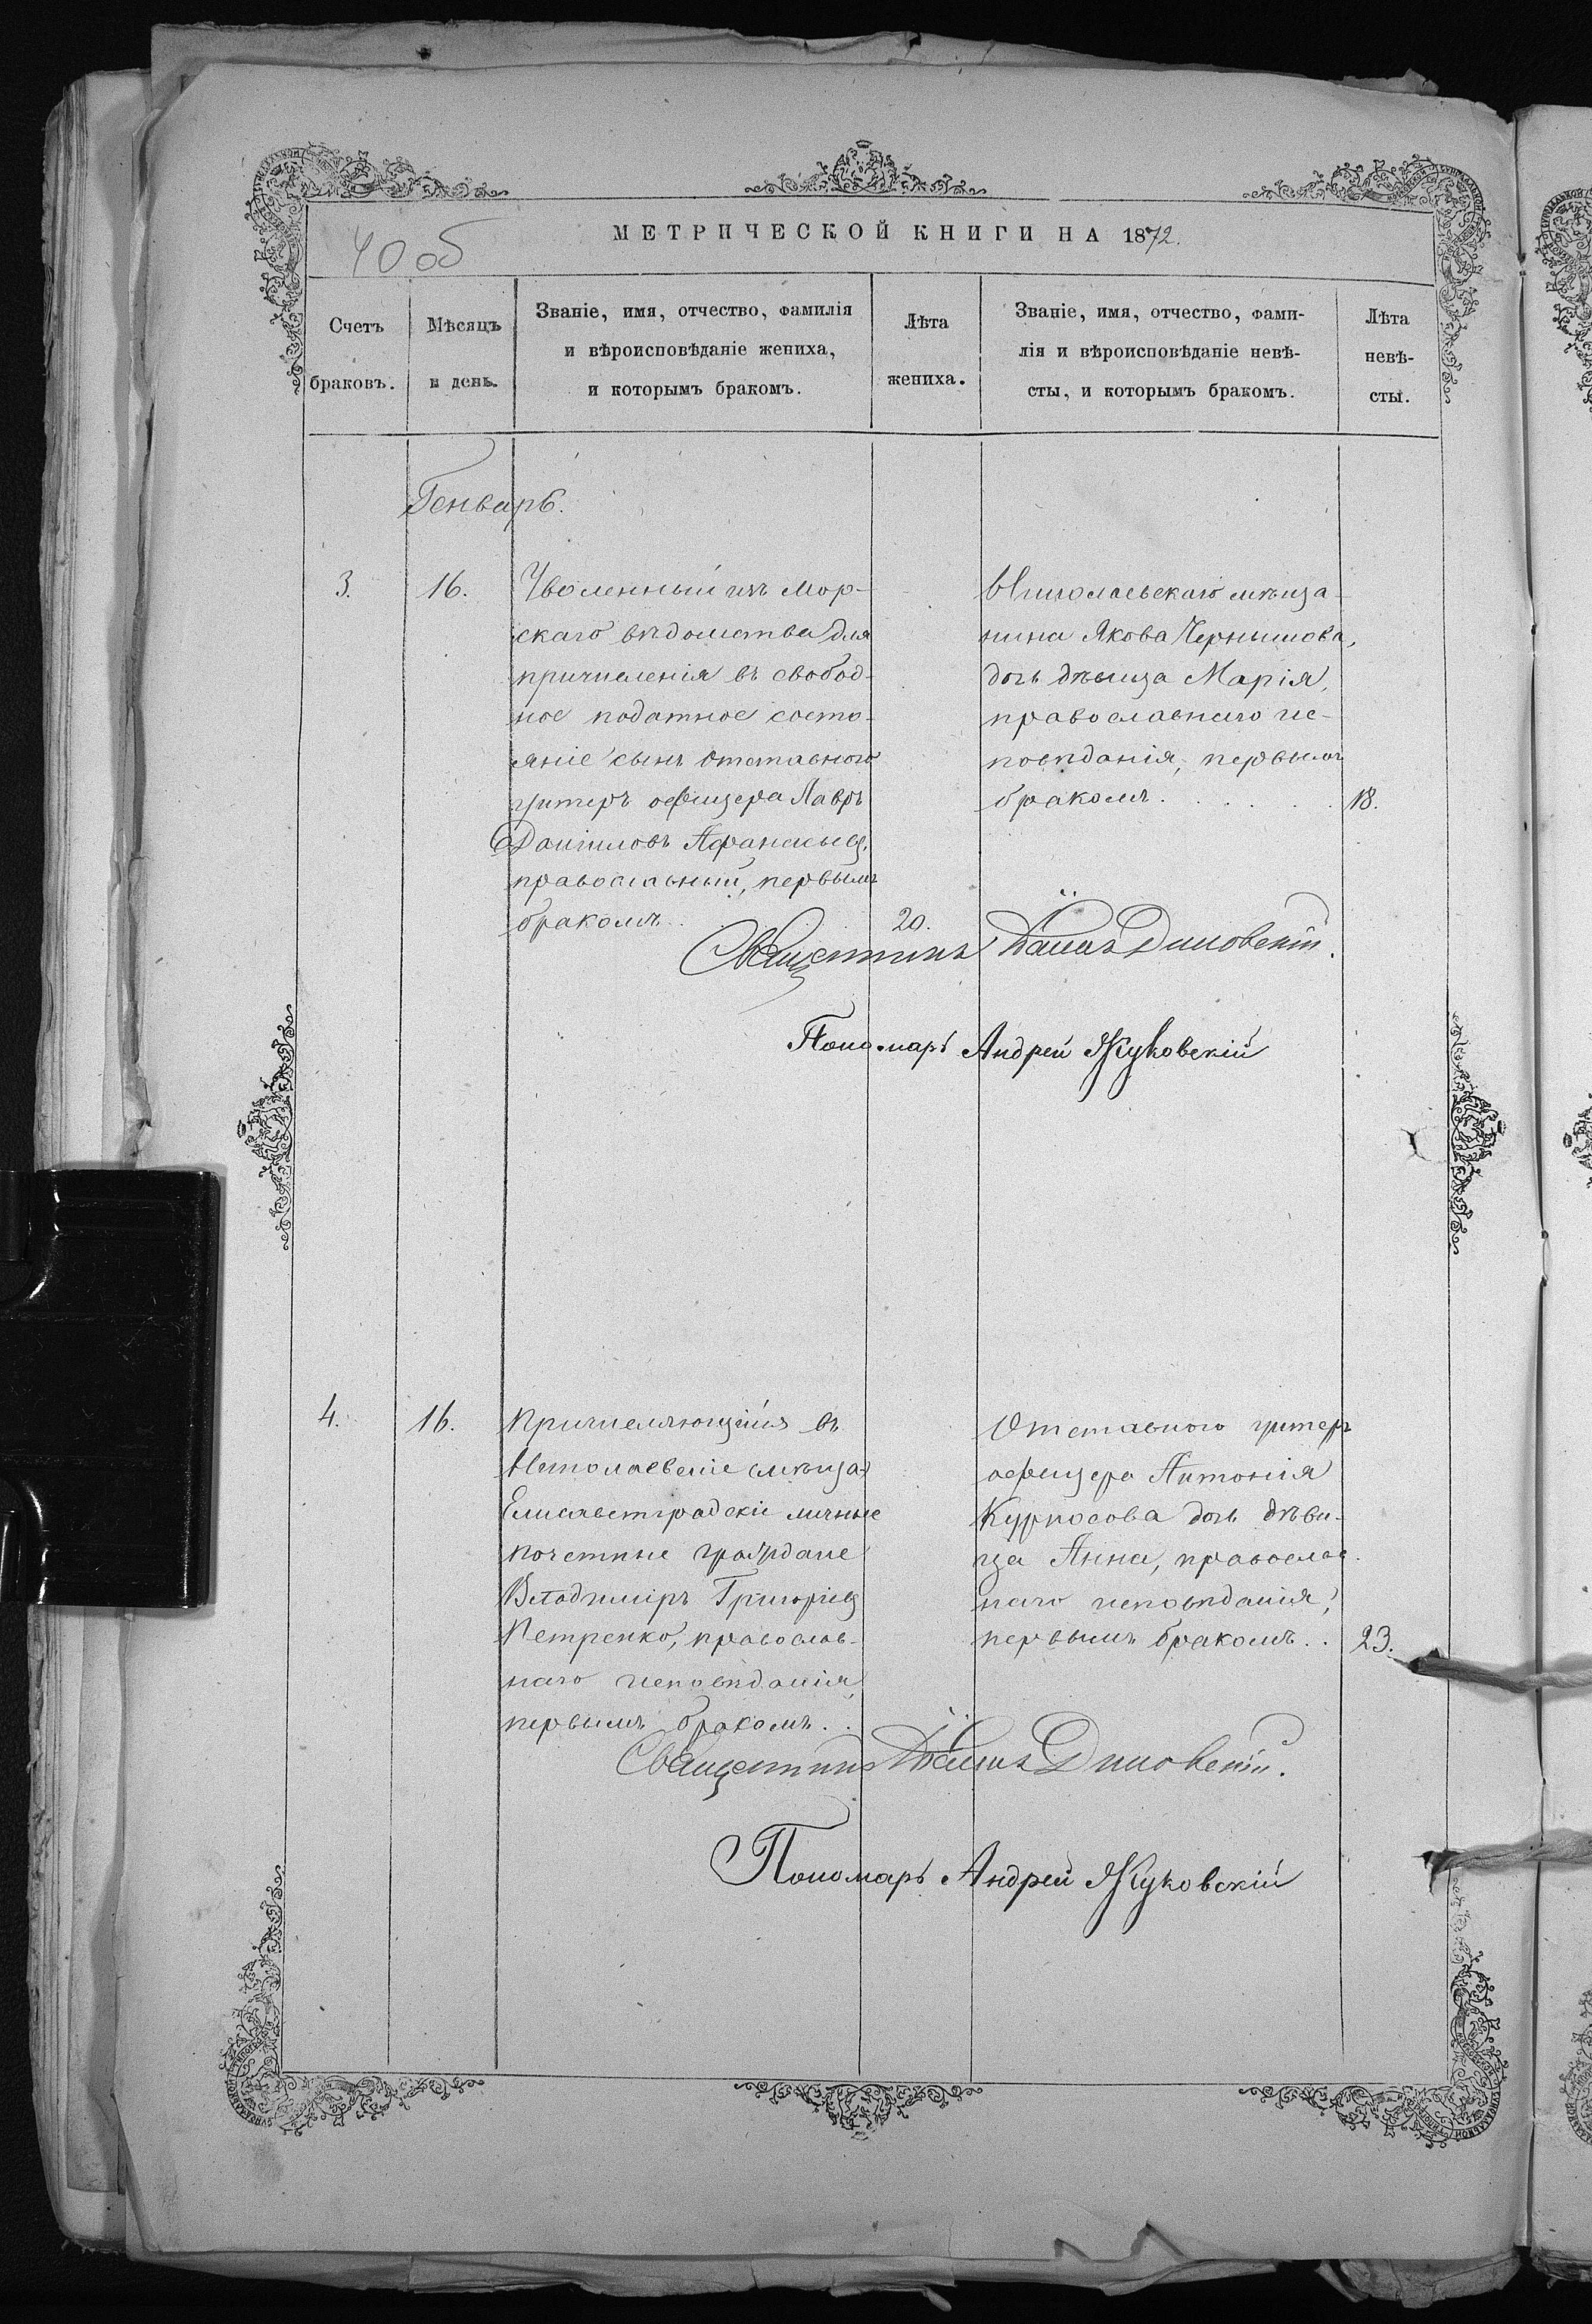 40 об
МЕТРИЧЕСКОЙ КНИГИ НА 1872.
Счетъ
браковъ.
Мѣсяцъ
и день.
Званіе, имя, отчество, фамилія
и вѣроисповѣданіе жениха,
и которымъ бракомъ.
Лѣта
жениха.
Званіе, имя, отчество, фами-
лія и вѣроисповѣданіе невѣ-
сты, и которымъ бракомъ.
Лѣта
невѣ-
сты.
Генварь.
3.
16.
Уволенный изъ Мор-
скаго вѣдомства для
причисленія въ свобод-
ное податное состо-
яніе сынъ отставного
унтеръ офицера Лавръ
Даніиловъ Афанасьевъ,
православный, первымъ
бракомъ.
20.
Николаевскаго мѣща-
нина Якова Чернышова,
дочь дѣвица Марія,
православнаго ис-
повѣданія, первымъ
бракомъ.
18.
Священникъ Диковскій.
Пономарь Андрей Жуковскій
4.
16.
Причисляющійся въ
Николаевскіе мѣща-
Елисаветградскіе личные
почетные граждане
Владиміръ Григорьевъ
Петренко, православ-
наго исповѣданія
первымъ бракомъ.
Отставного унтеръ
офицера Антонія
Курносова дочь дѣви-
ца Анна, православ-
наго исповѣданія,
первымъ бракомъ.
23.
Священникъ Диковскій.
Пономарь Андрей Жуковскій